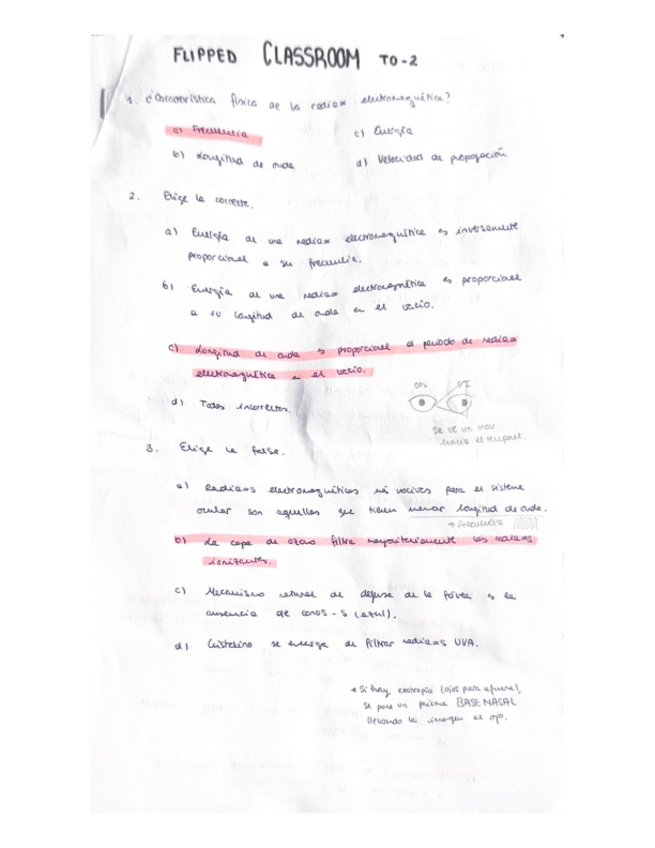 FLIPPED CLASSROOM TO-2
1. ¿Característica física de la radiación electromagnética?
a) Frecuencia
c) Energía
b) Longitud de onda
d) Velocidad de propagación
2. Elige la correcta.
a) Energía de una radiación electromagnética es inversamente
proporcional a su frecuencia.
b) Energía de una radiación electromagnética es proporcional
a su longitud de onda en el vacío.
c) Longitud de onda es proporcional al periodo de radiación
electromagnética en el vacío.
d) Todas incorrectas.
Se ve un mov
hacia el temporal.
3. Elige la falsa.
a) Radiaciones electromagnéticas más nocivas para el sistema
ocular son aquellas que tienen menor longitud de onda.
frecuencia
b) La capa de ozono filtra mayoritariamente las radiaciones
ionizantes.
c) Mecanismo natural de defensa de la fóvea es la
ausencia de conos-S (azul).
d) Cristalino se encarga de filtrar radiaciones UVA.
* Si hay exotropia (ojos para afuera),
se pone un prisma BASE NASAL
llevando la imagen al ojo.